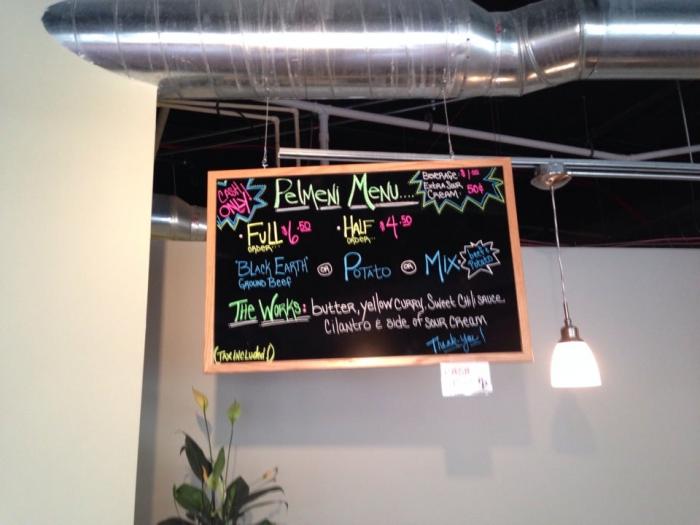 CASH ONLY!
Pelmeni Menu....
Beverage: $1.00
Extra Sour Cream. 50¢
• Full order... $6.50
• Half order... $4.50
"Black Earth" Ground Beef or Potato or Mix. beef & potato
The Works: butter, yellow curry, sweet chili sauce,
cilantro & side of sour cream
Thank-you!
(Tax included!)